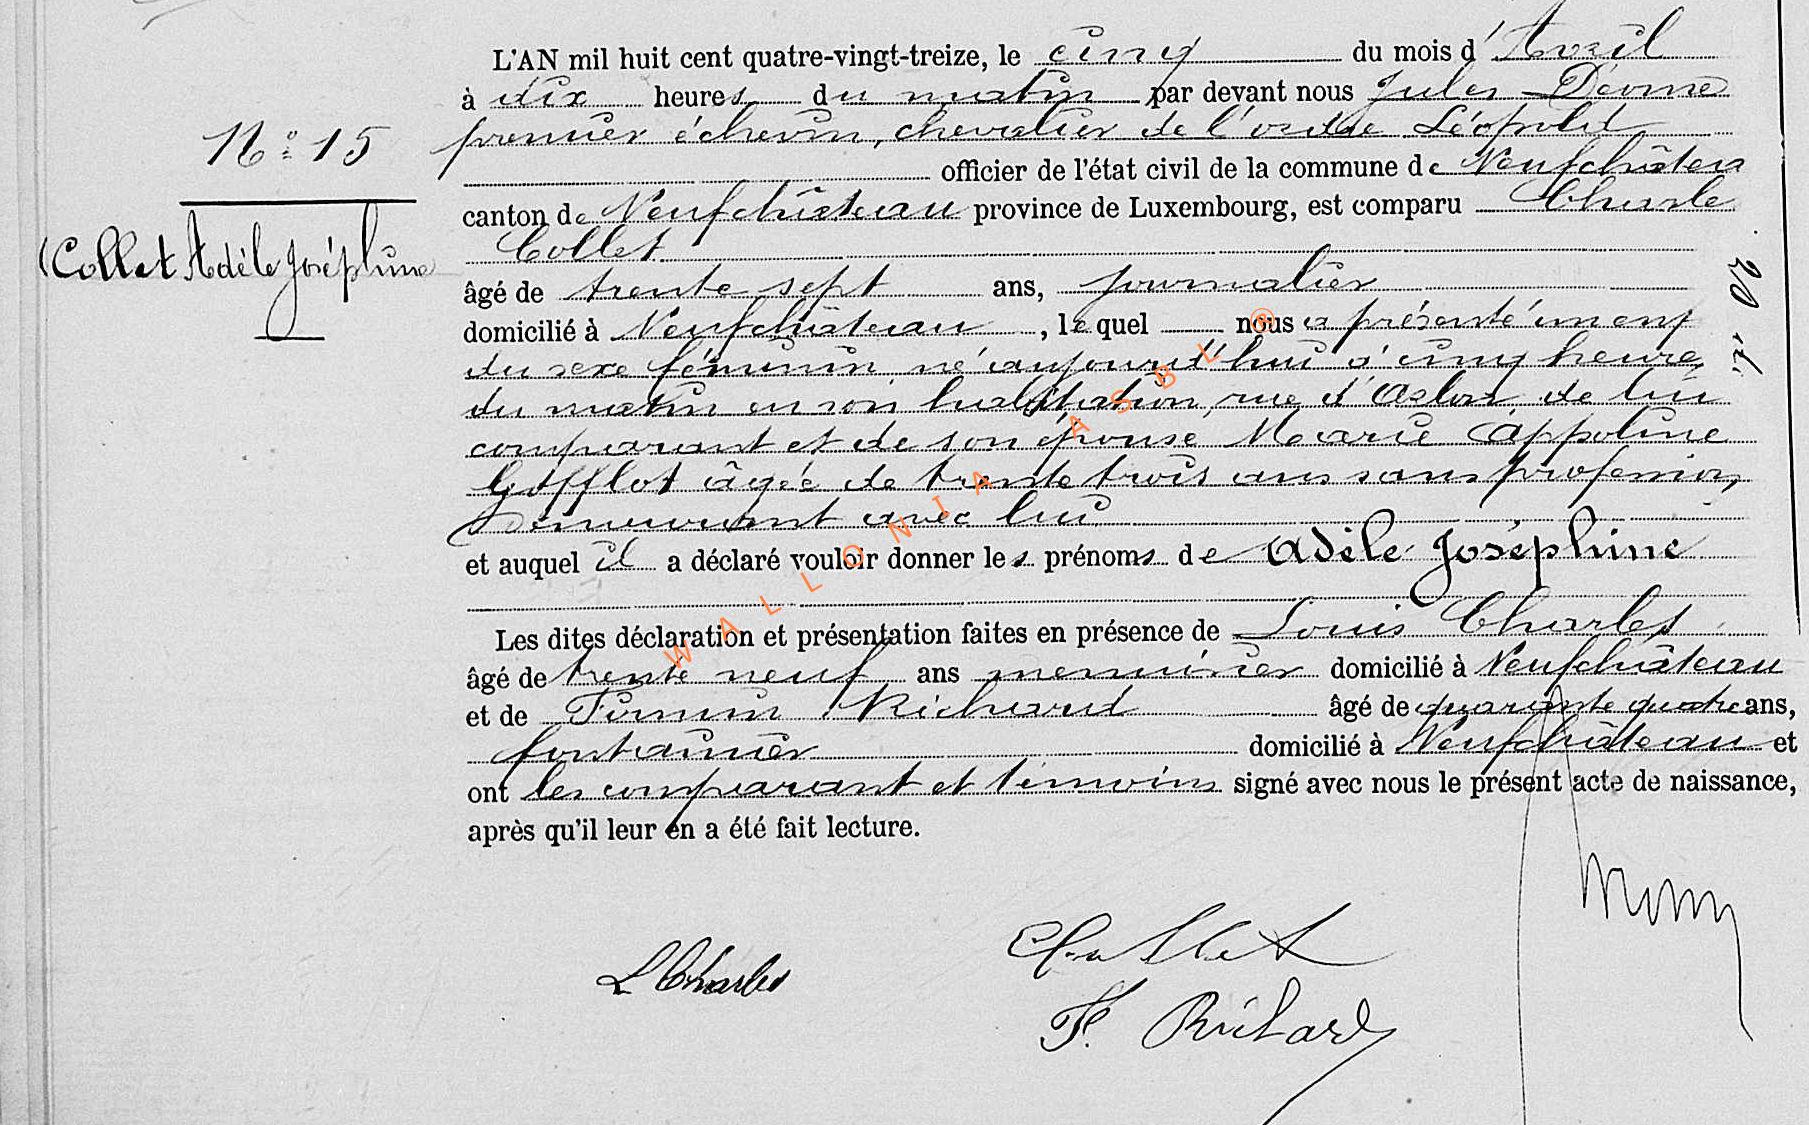 L'AN mil huit cent quatre-vingt-treize, le cinq du mois d'Avril
à dix heures du matin par devant nous Jules
premier échevin, chevalier de l'ordre Léopold
N° 15
officier de l'état civil de la commune de Neufchâteau
canton de Neufchâteau province de Luxembourg, est comparu Charle
Collet Adèle Joséphine
Collet
âgé de trente sept ans, journalier
domicilié à Neufchâteau, lequel nous a présenté un enf
du sexe féminin né aujourd'hui à cinq heures
du matin en son habitation, rue d' de lui
comparant et de son épouse Marie Appoline
Gofflot âgée de trente trois ans sans profession,
Demeurant avec lui
et auquel il a déclaré vouloir donner les prénoms de Adèle Joséphine
Les dites déclaration et présentation faites en présence de Louis Charles
âgé de trente neuf ans menuisier domicilié à Neufchâteau
et de Firmin Richard âgé de quarante quatre ans,
fontainier domicilié à Neufchâteau et
ont les comparant et témoins signé avec nous le présent acte de naissance,
après qu'il leur en a été fait lecture.
L Charles
Collet
F. Richard
WALLONIA ASBL ®